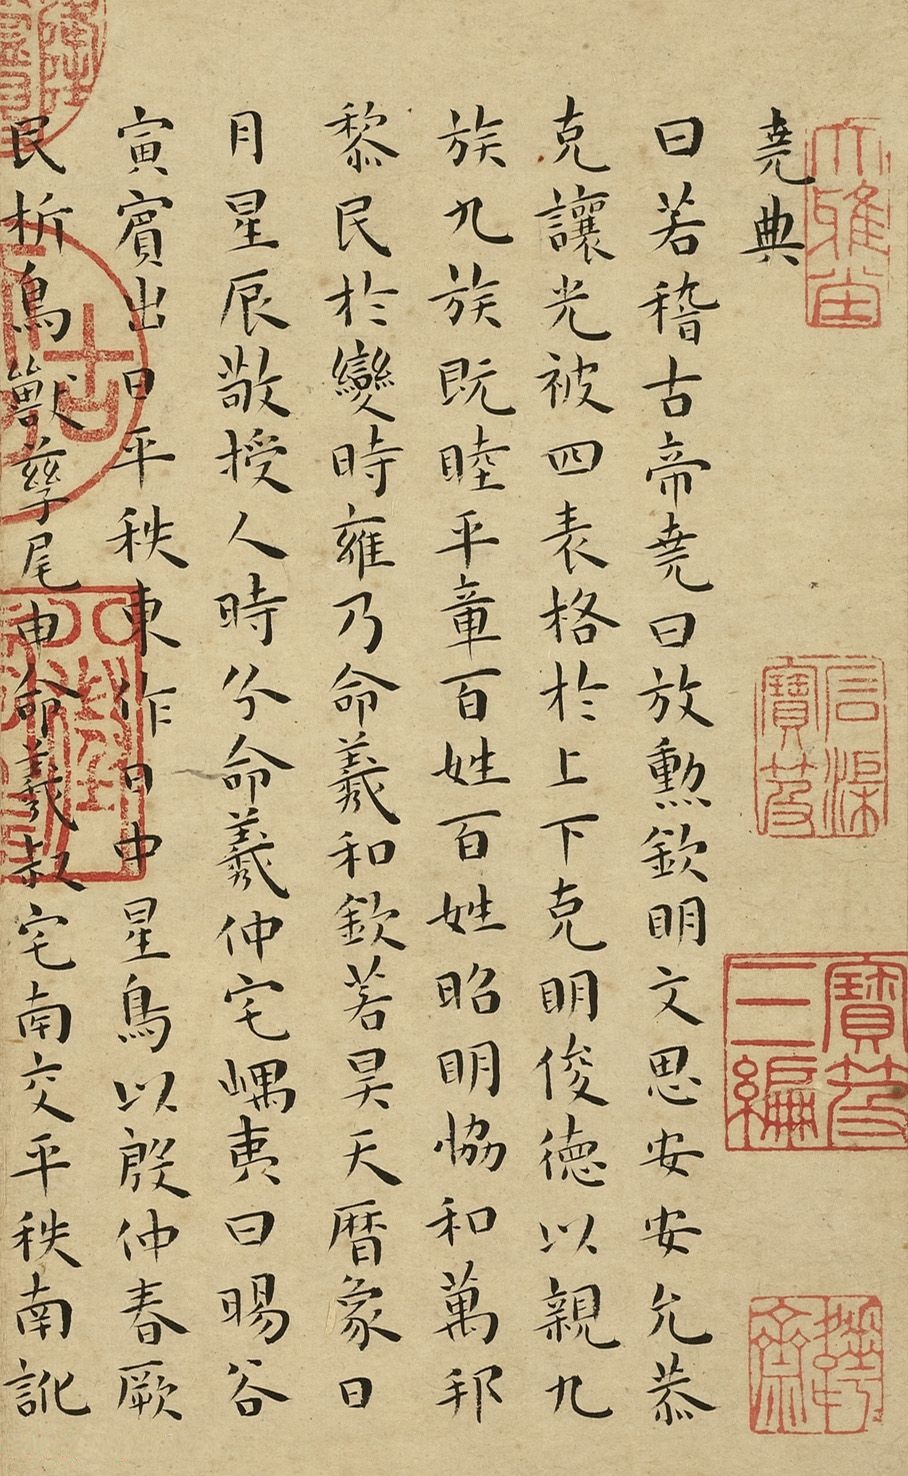 堯典
曰若稽古帝堯曰放勳欽明文思安安允恭
克讓光被四表格於上下克明俊德以親九
族九族既睦平章百姓百姓昭明協和萬邦
黎民於變時雍乃命羲和欽若昊天曆象日
月星辰敬授人時分命羲仲宅嵎夷曰暘谷
寅賓出日平秩東作日中星鳥以殷仲春厥
民析鳥獸孳尾申命羲叔宅南交平秩南訛
大雅
石渠寶笈
寶笈三編